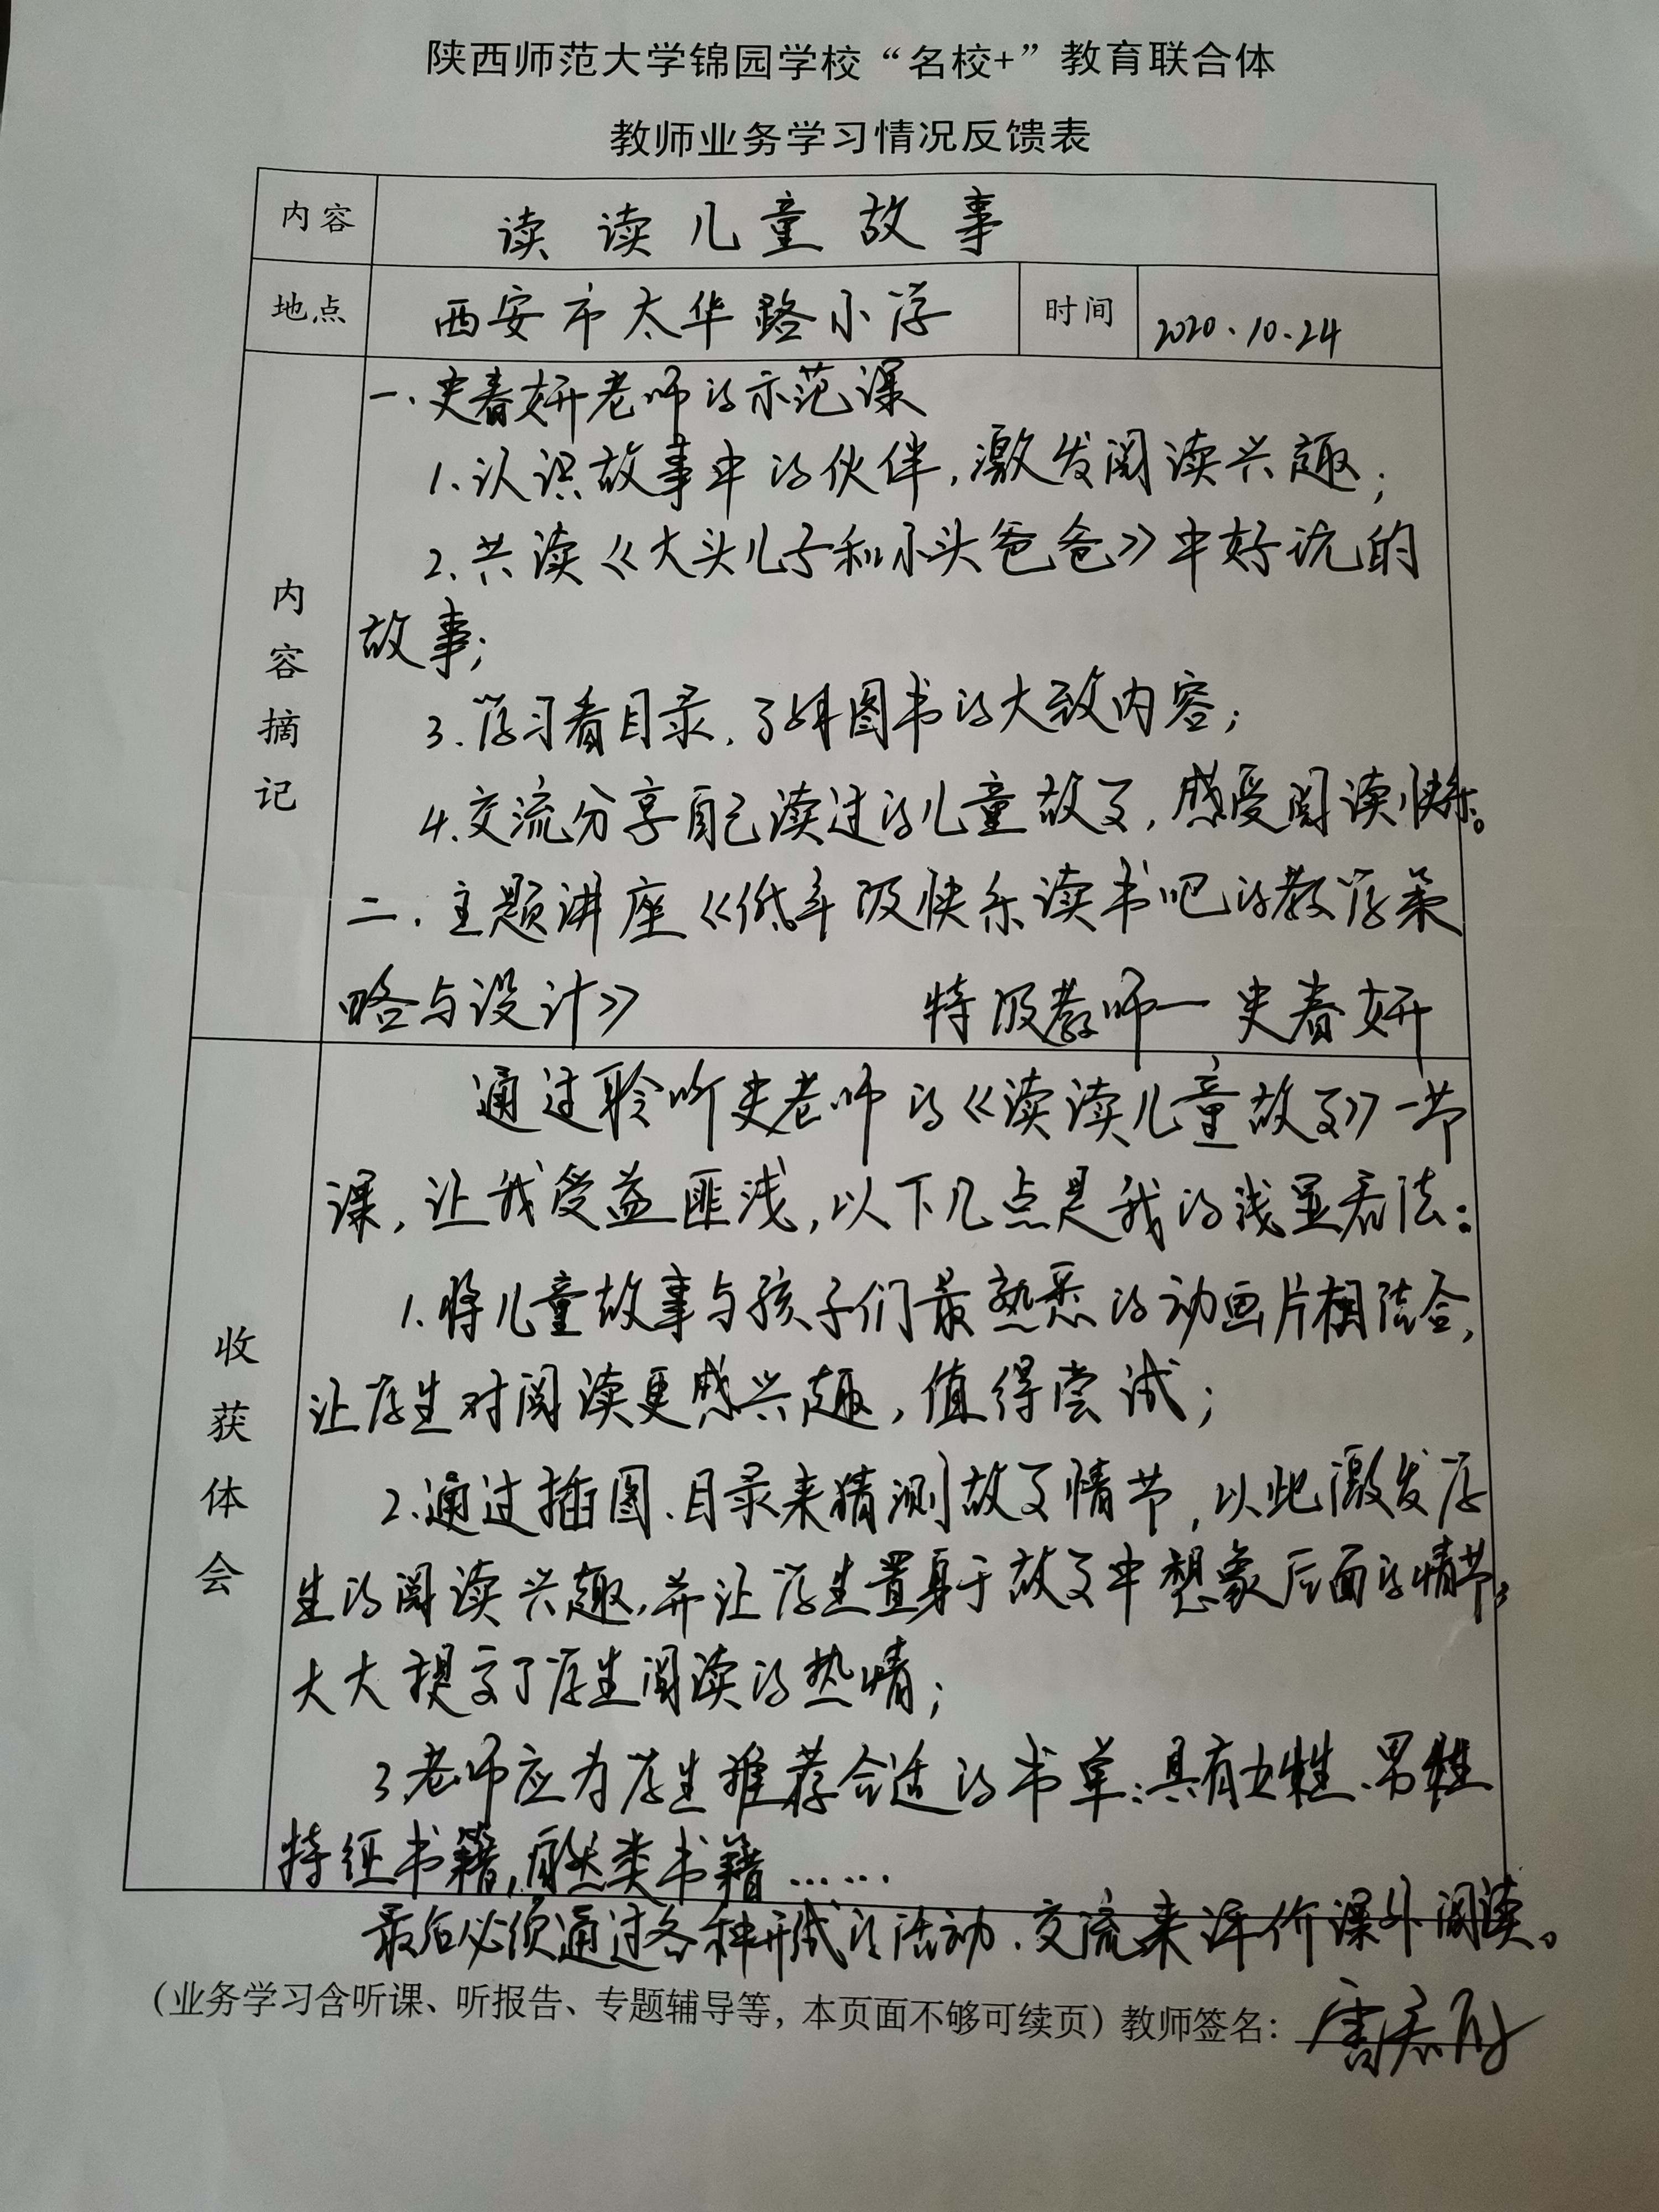 陕西师范大学锦园学校“名校+”教育联合体
教师业务学习情况反馈表
内容 读读儿童故事
地点 西安市太华路小学 时间 2020.10.24
内容摘记
一.史春妍老师的示范课
1.认识故事中的伙伴,激发阅读兴趣;
2.共读《大头儿子和小头爸爸》中好玩的
故事;
3.学习看目录,了解图书的大致内容;
4.交流分享自己读过的儿童故事,感受阅读快乐。
二.主题讲座《低年级快乐读书吧的教学策
略与设计》 特级教师一史春妍
收获体会
通过聆听史老师的《读读儿童故事》一节
课,让我受益匪浅,以下几点是我的浅显看法:
1.将儿童故事与孩子们最熟悉的动画片相结合,
让学生对阅读更感兴趣,值得尝试;
2.通过插图、目录来猜测故事情节,以此激发学
生的阅读兴趣,并让学生置身于故事中想象后面的情节,
大大提高了学生阅读的热情;
3.老师应为学生推荐合适的书单:具有女性、男性
特征书籍,自然类书籍……
最后必须通过各种形式的活动、交流来评价课外阅读。
(业务学习含听课、听报告、专题辅导等,本页面不够可续页)教师签名: